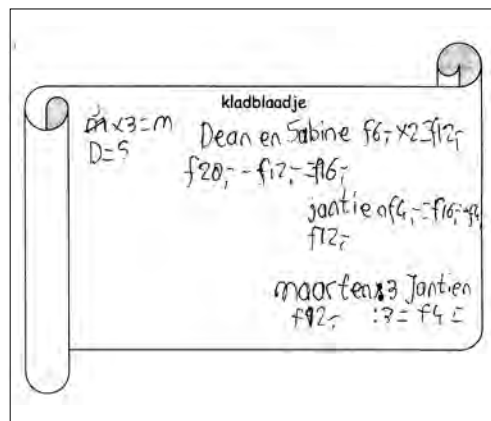 kladblaadje
x3=m
D=S
Dean en Sabine f6,- x2=f12,-
f28,- - f12,- =f16,-
jantien f4,-=f16,-
f12,-
maarten:3 Jantien
f12,- :3= f4=